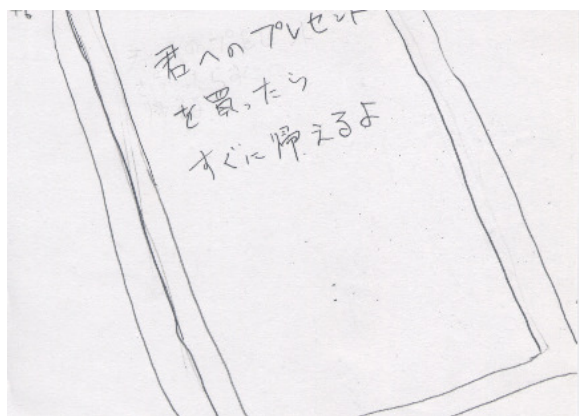 君へのプレゼント
を買ったら
すぐに帰えるよ